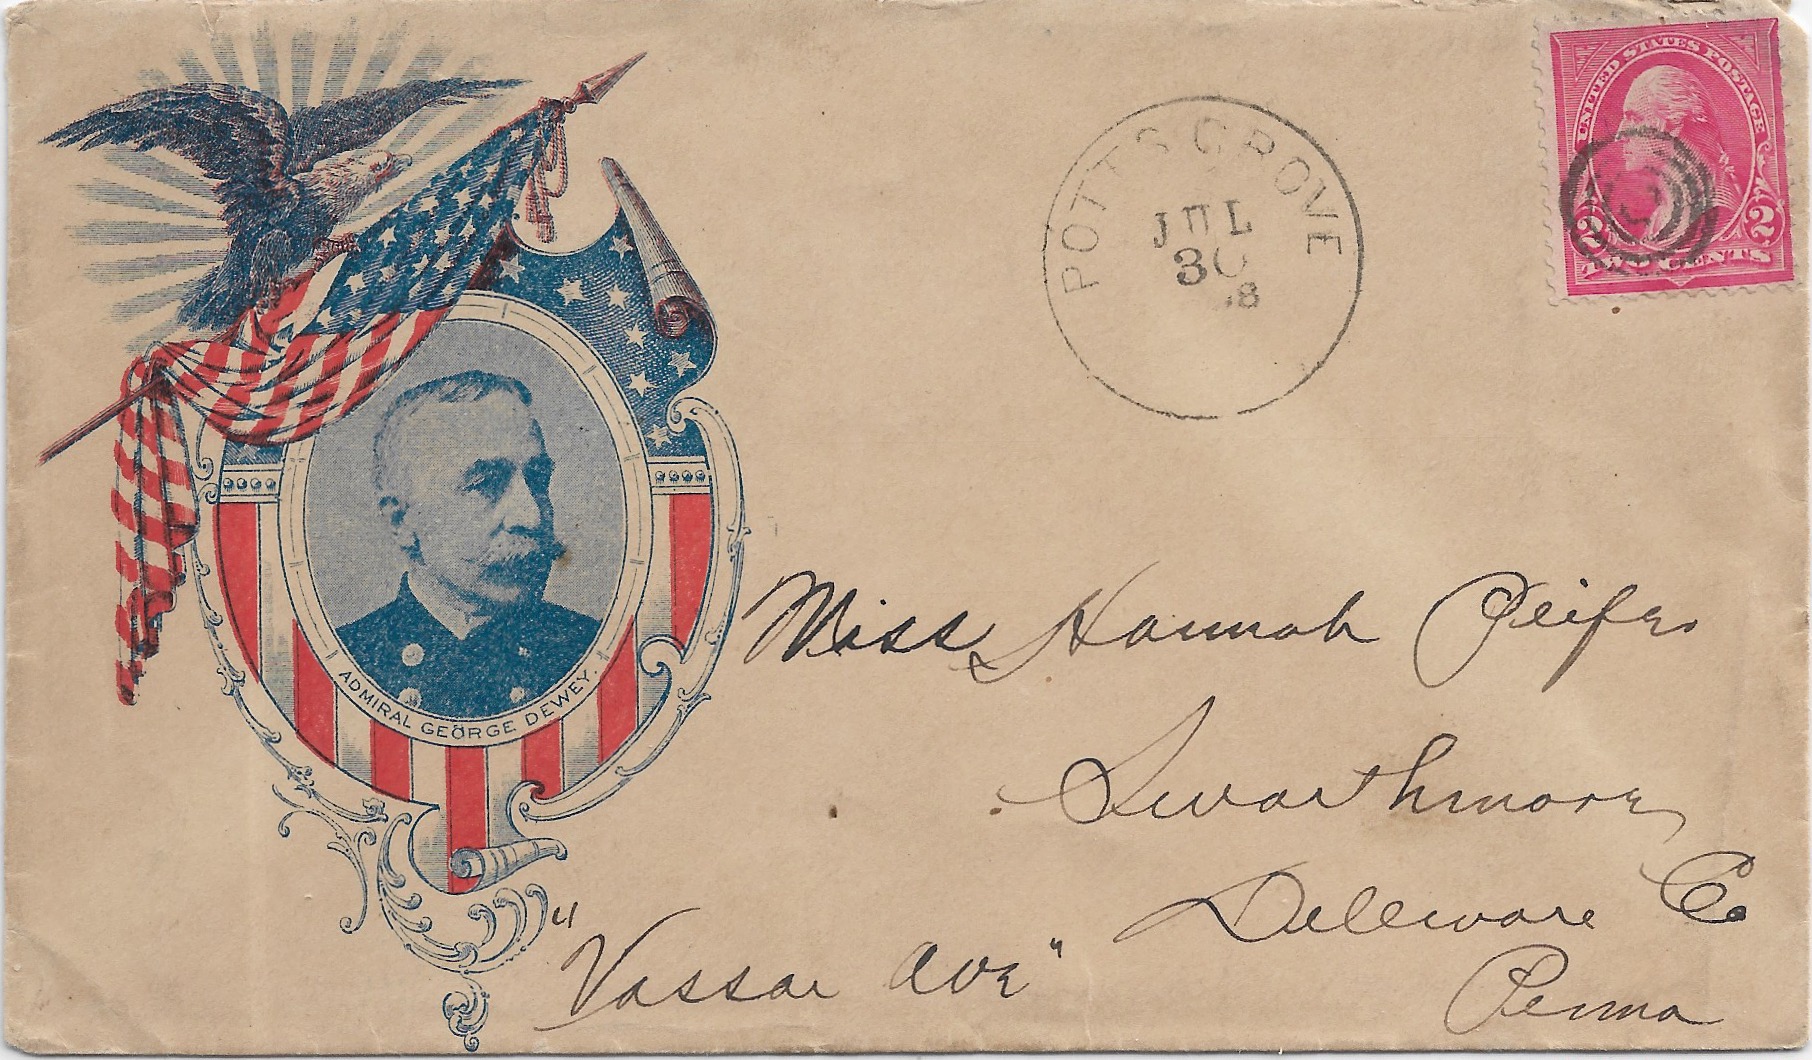 UNITED STATES POSTAGE
2 2
TWO CENTS
POTTS GROVE
JUL
30
8
ADMIRAL GEORGE DEWEY.
Miss Hannah Peifer
Swarthmore
Deleware Co
Penna
"Vassar Ave"